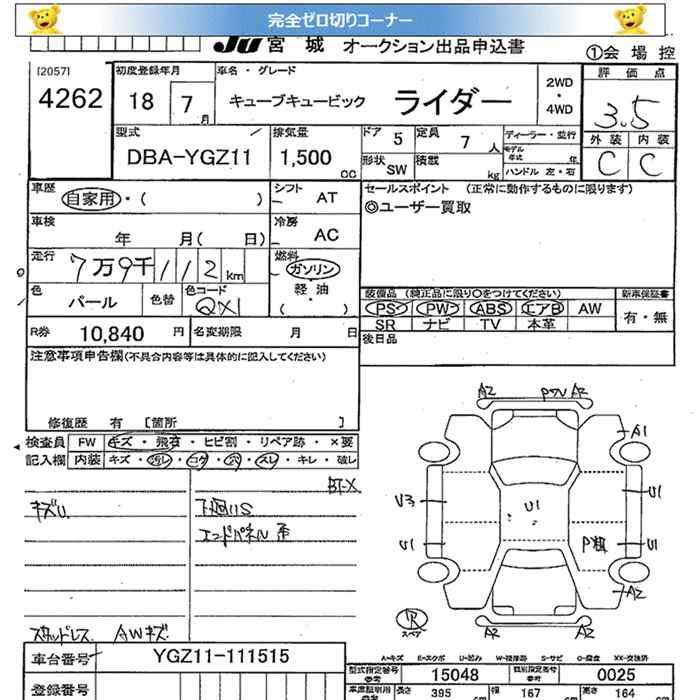 完全ゼロ切りコーナー
JU 宮城 オークション出品申込書 ①会場控
[2057]
4262
初度登録年月 18 7月
車名・グレード キューブキュービック ライダー
2WD・4WD
評価点 3.5
外装 内装
C C
型式 DBA-YGZ11
排気量 1,500 cc
ドア 5
定員 7 人
形状 SW
積載 kg
ディーラー・並行
モデル年式 年
ハンドル 左・右
車歴 自家用・( )
シフト AT
セールスポイント (正常に動作するものに限ります)
◎ユーザー買取
車検 年 月( 日)
冷房 AC
走行 7万9千112km
燃料 ガソリン・軽油 ( )
色 パール 色替
色コード QX1
装備品 (純正品に限り○をつけてください)
PS PW ABS エアB AW
SR ナビ TV 本革
新車保証書 有・無
R券 10,840 円
名変期限 月 日
後日品
注意事項申告欄(不具合内容等は具体的に記入してください)
修復歴 有 [箇所 ]
検査員記入欄
FW キズ・飛石・ヒビ割・リペア跡・×要
内装 キズ・汚レ・コゲ・穴・スレ・キレ・破レ
BT-X
キズU
下廻りS
エンドパネル歪
スタッドレス AWキズ
A2 A2
A1
U3 U1
U1
U1 U1
A2
R
スペア
A2 A2
A=キズ E=エクボ U=凹み W=補修跡 S=サビ C=腐食 XX=交換済
車台番号 YGZ11-111515
登録番号
型式指定番号 参考 15048
類別指定番号 参考 0025
車庫証明用 参考 長さ 395 cm 幅 167 cm 高さ 164 cm